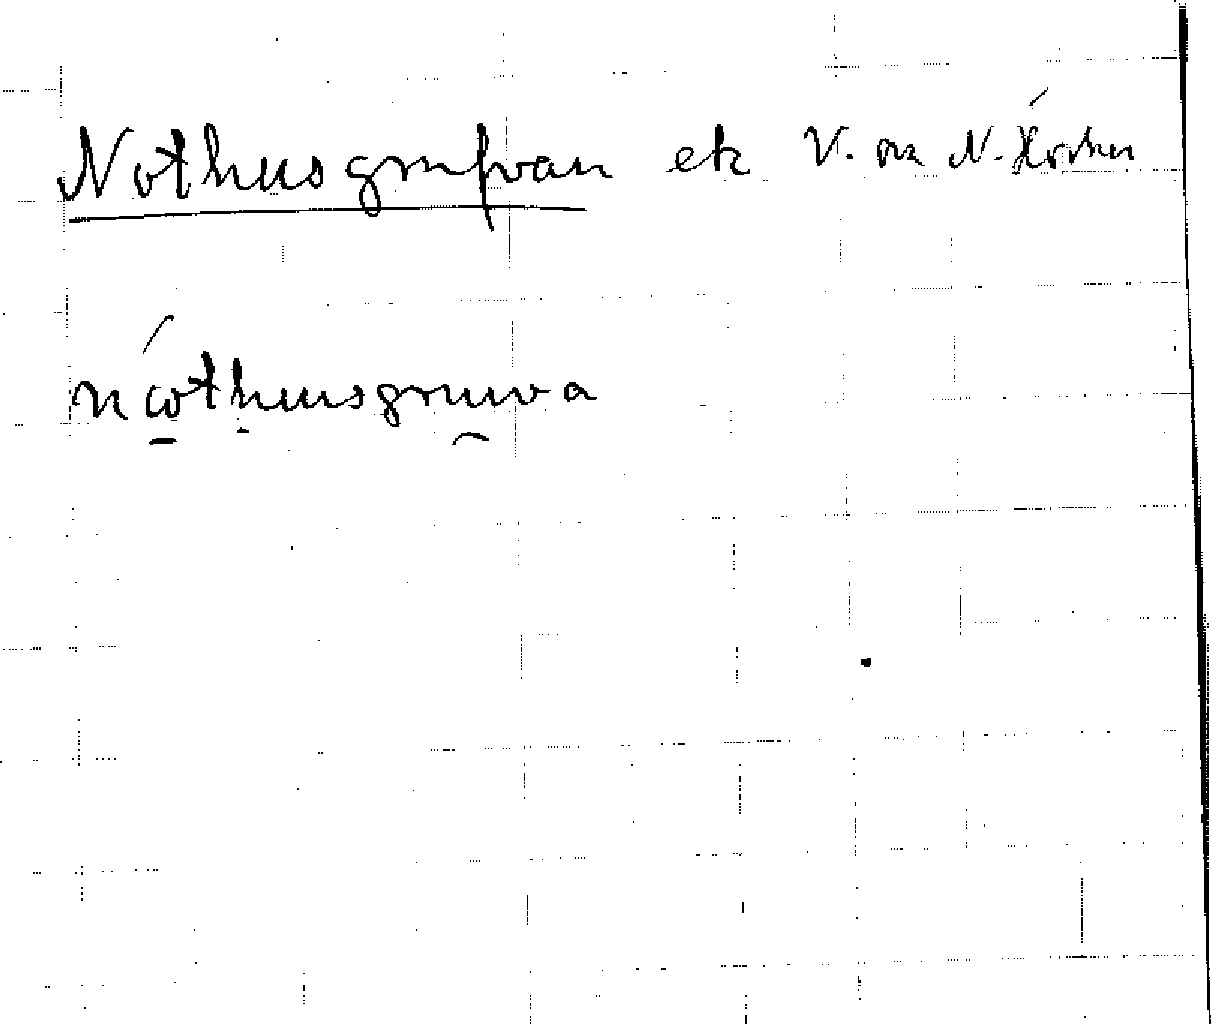 Nothusgrufvan etc V. om N. Hörken
nothusgruva